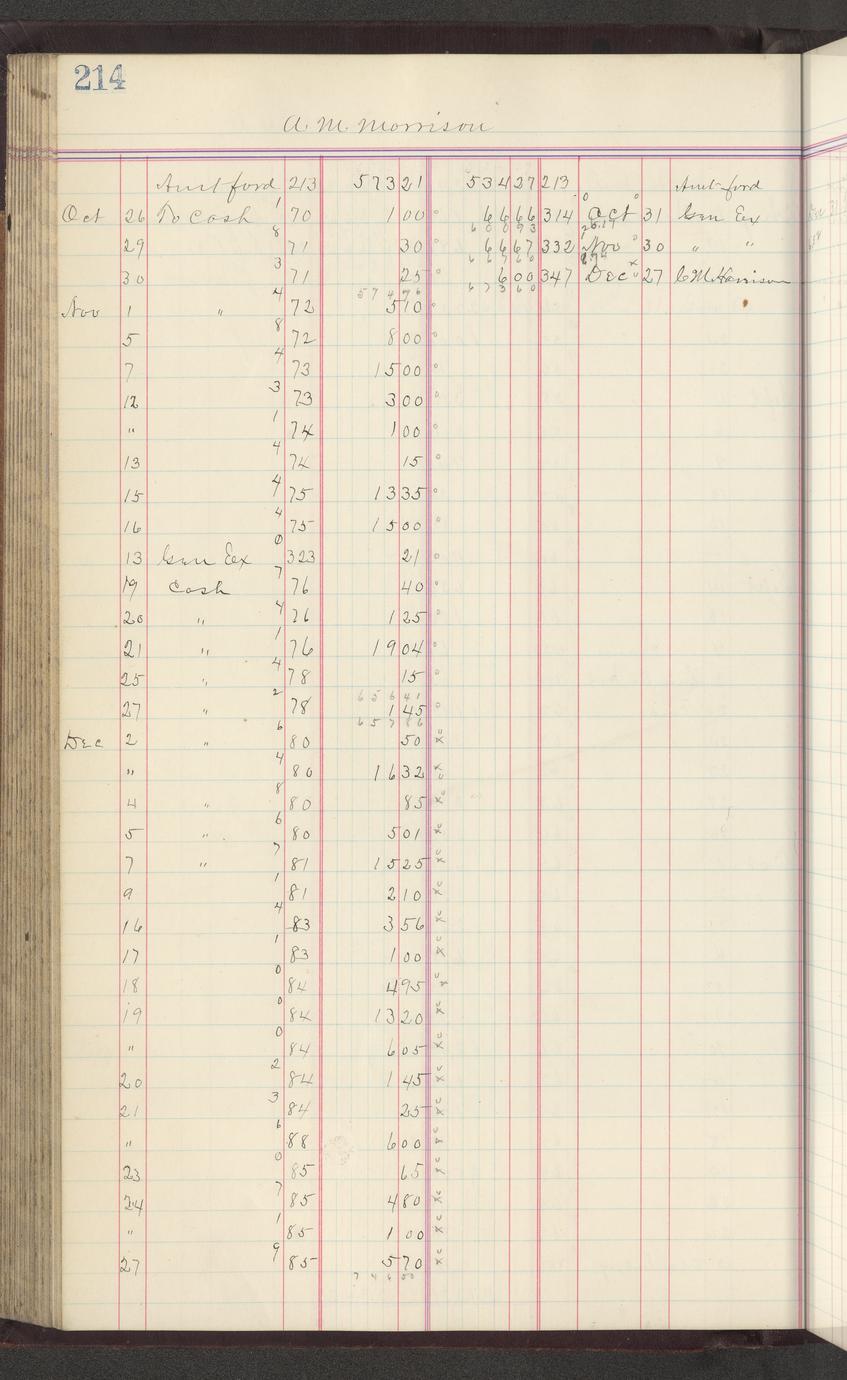 214
A. M. Morrison
Amt ford 213 573 21 534 27 213 Amt ford
Oct 26 To Cash 1 70 1 00 66 66 314 Oct 31 Gen Ex
600 93
29 8 71 30 66 67 332 Nov 30 " "
667 60
30 3 71 25 6 00 347 Dec 27 C M Harrison
574 76 673 60
Nov 1 " 4 72 5 10
5 8 72 8 00
7 4 73 15 00
12 3 73 3 00
" 1 74 1 00
13 4 74 15
15 4 75 13 35
16 4 75 15 00
13 Gen Ex 0 323 21
19 Cash 7 76 40
20 " 4 76 1 25
21 " 1 76 19 04
25 " 4 78 15
656 41
27 " 2 78 1 45
657 86
Dec 2 " 6 80 50
" 4 80 16 32
4 " 8 80 85
5 " 6 80 5 01
7 " 7 81 15 25
9 1 81 2 10
16 4 83 3 56
17 1 83 1 00
18 0 84 4 95
19 0 84 13 20
" 0 84 6 05
20 2 84 1 45
21 3 84 25
" 6 88 6 00
23 0 85 65
24 7 85 4 80
" 1 85 1 00
27 9 85 5 70
746 00